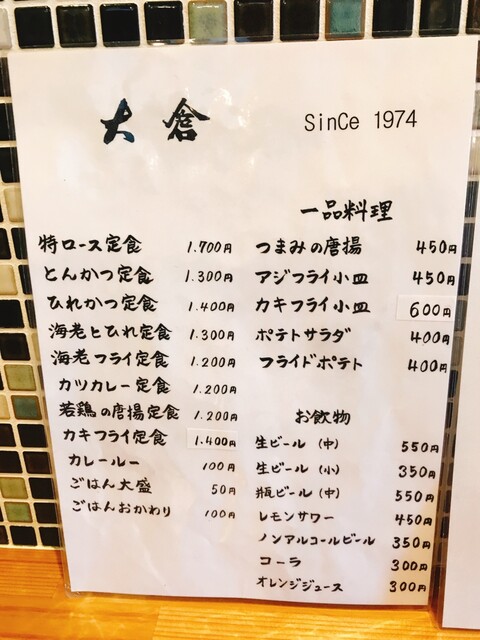 大倉
SinCe 1974
特ロース定食 1.700円
とんかつ定食 1.300円
ひれかつ定食 1.400円
海老とひれ定食 1.300円
海老フライ定食 1.200円
カツカレー定食 1.200円
若鶏の唐揚定食 1.200円
カキフライ定食 1.400円
カレールー 100円
ごはん大盛 50円
ごはんおかわり 100円
一品料理
つまみの唐揚 450円
アジフライ小皿 450円
カキフライ小皿 600円
ポテトサラダ 400円
フライドポテト 400円
お飲物
生ビール (中) 550円
生ビール (小) 350円
瓶ビール (中) 550円
レモンサワー 450円
ノンアルコールビール 350円
コーラ 300円
オレンジジュース 300円